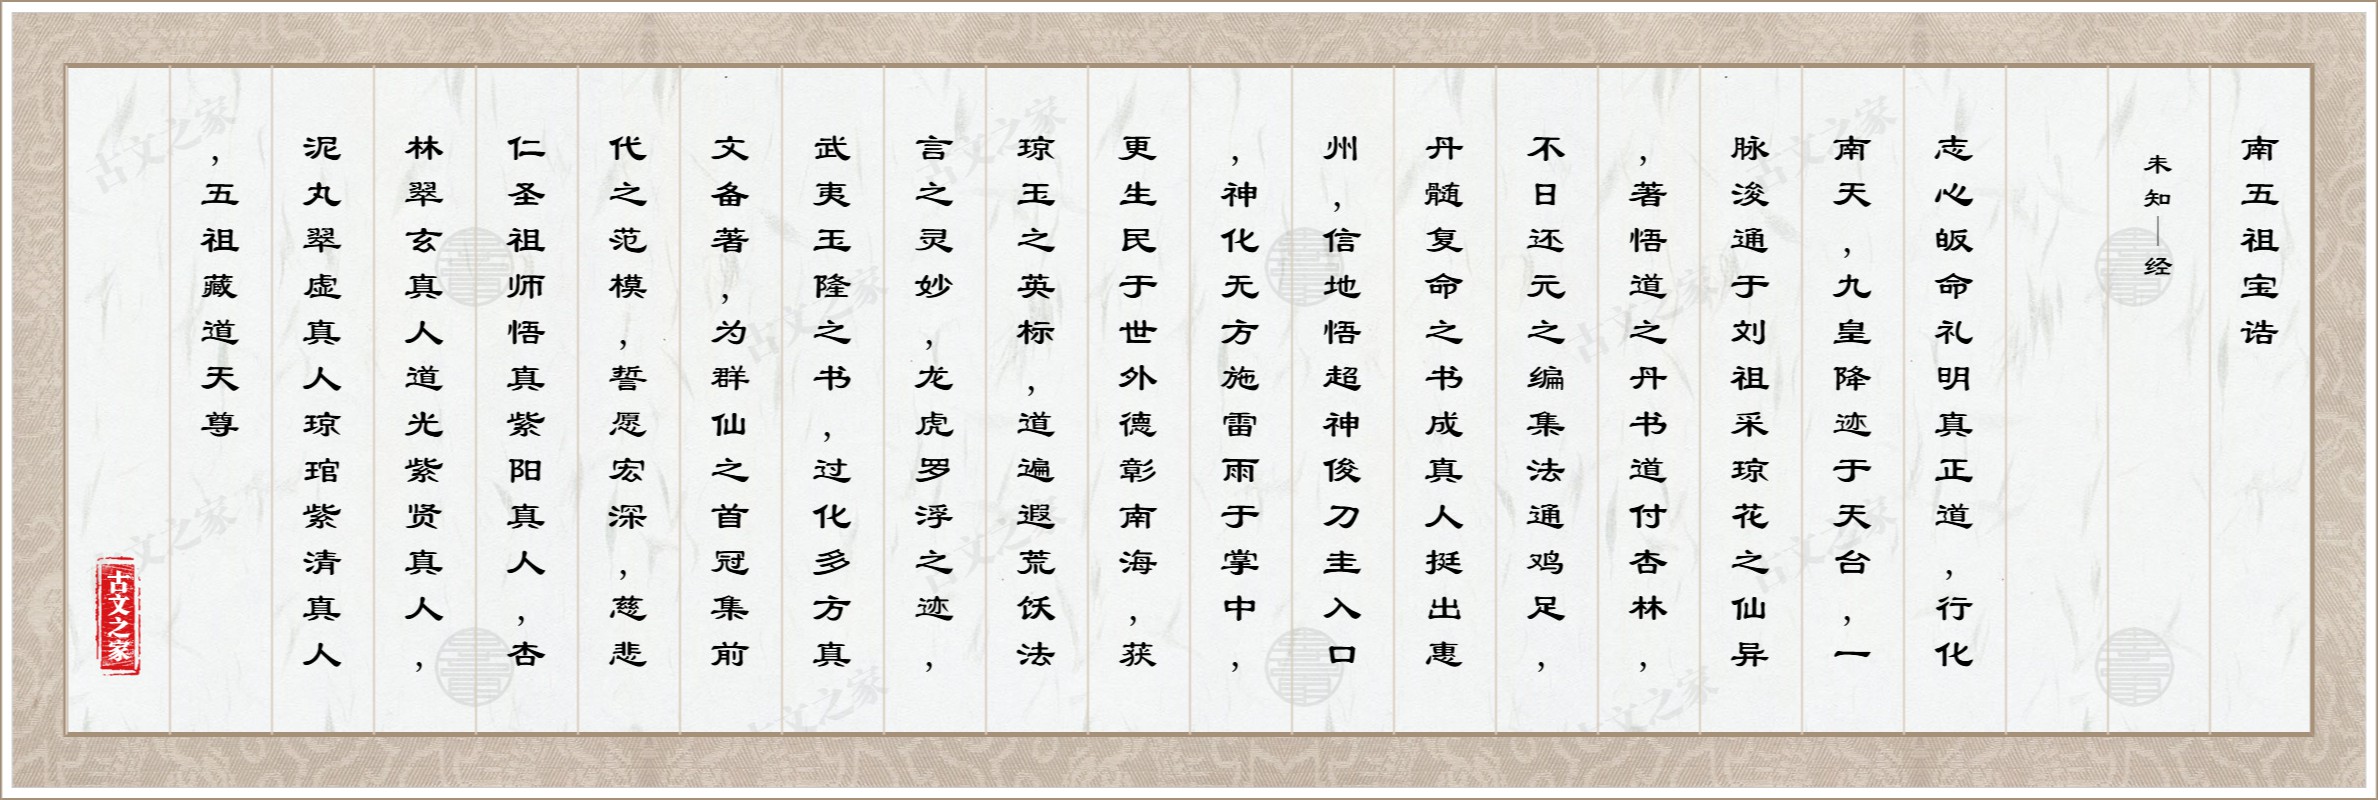 南五祖宝诰
未知—经
志心皈命礼明真正道，行化
南天，九皇降迹于天台，一
脉浚通于刘祖采琼花之仙异
，著悟道之丹书道付杏林，
不日还元之编集法通鸡足，
丹髓复命之书成真人挺出惠
州，信地悟超神俊刀圭入口
，神化无方施雷雨于掌中，
更生民于世外德彰南海，获
琼玉之英标，道遍遐荒饫法
言之灵妙，龙虎罗浮之迹，
武夷玉隆之书，过化多方真
文备著，为群仙之首冠集前
代之范模，誓愿宏深，慈悲
仁圣祖师悟真紫阳真人，杏
林翠玄真人道光紫贤真人，
泥丸翠虚真人琼琯紫清真人
，五祖藏道天尊
古文之家